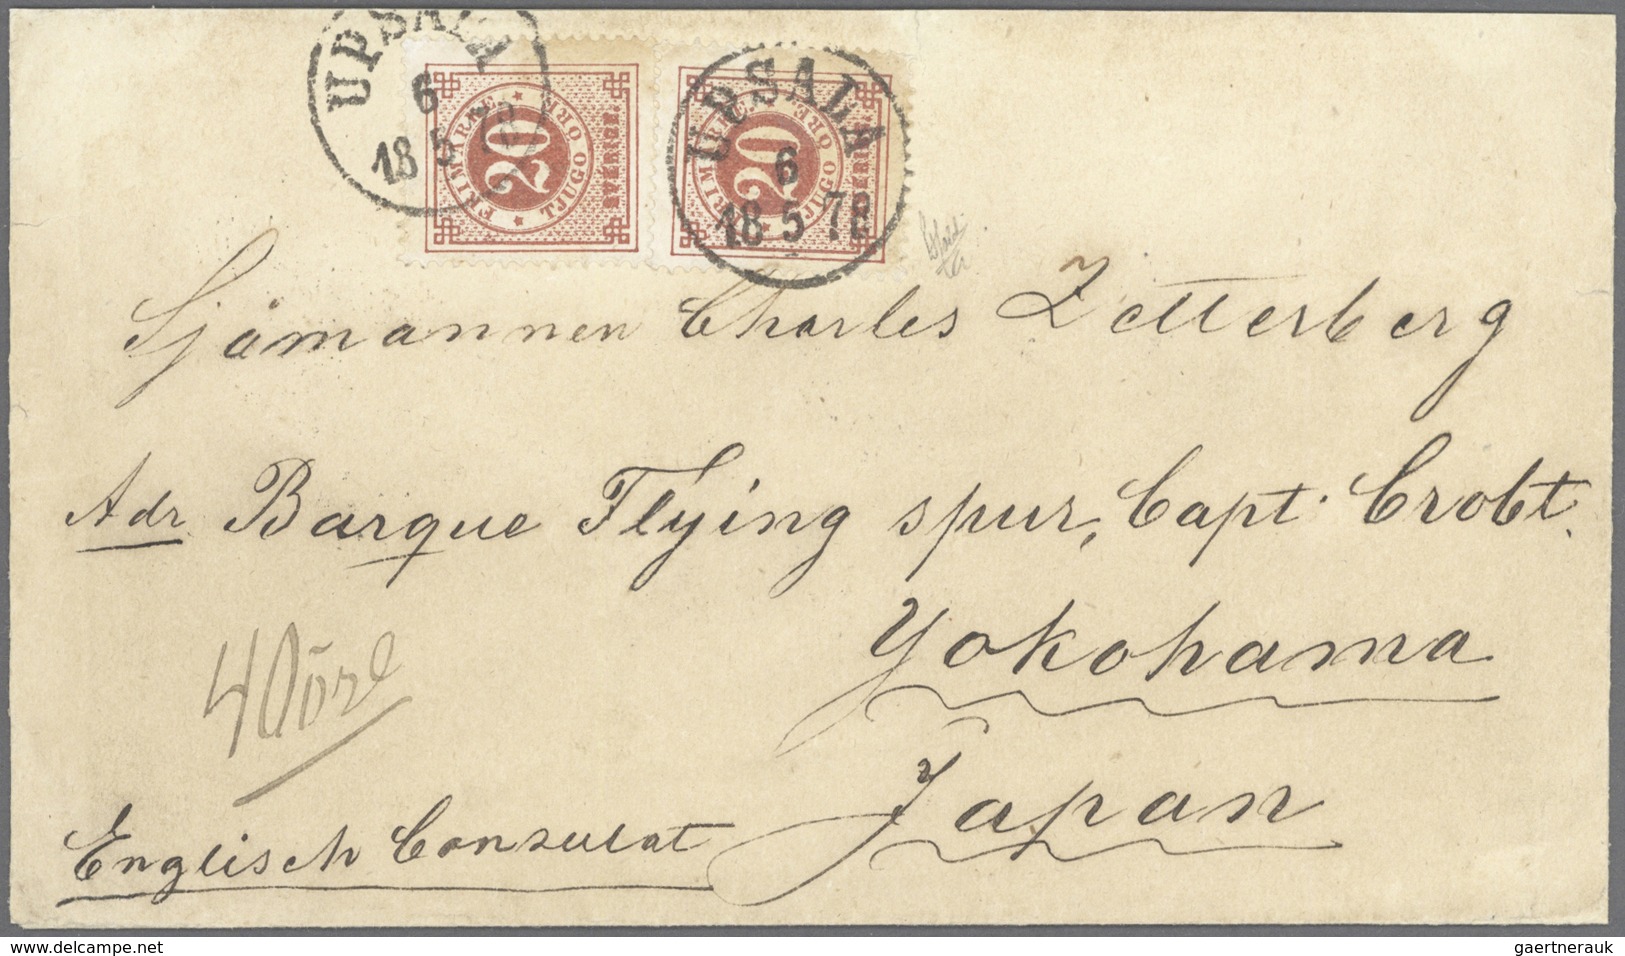 UPSALA
6
18 5 78
FRIMÄRKE
20
TJUGO ÖRE
SVERIGE.
UPSALA
6
18 5 78
FRIMÄRKE
20
TJUGO ÖRE
SVERIGE.
Sjömannen Charles Zetterberg
Adr Barque Flying spur, Capt. Crobt.
Yokohama
40öre
Japan
Englisch Consulat
www.delcampe.net
gaertnerauk